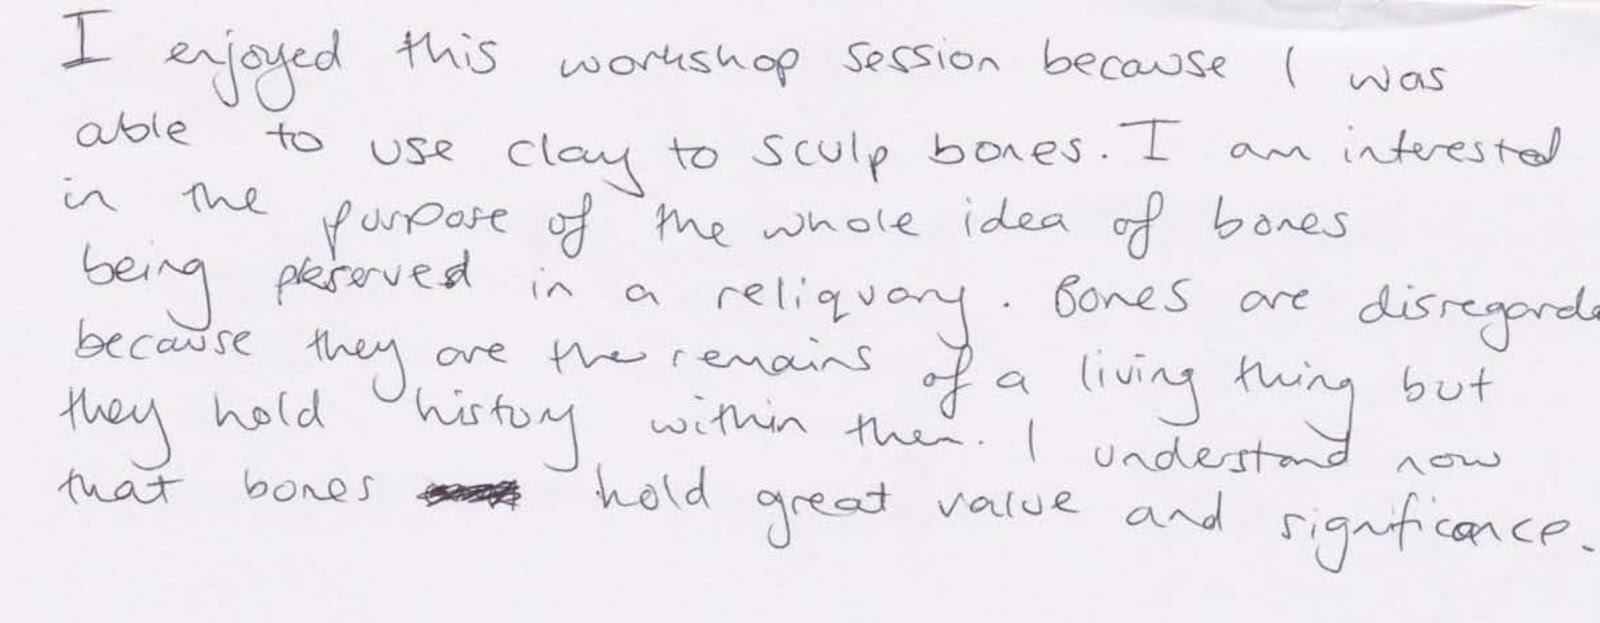 I enjoyed this workshop session because I was
able to use clay to sculp bones. I am interested
in the purpose of the whole idea of bones
being preserved in a reliquary. Bones are disregarde
because they are the remains of a living thing but
they hold history within them. I understand now
that bones hold great value and significance.